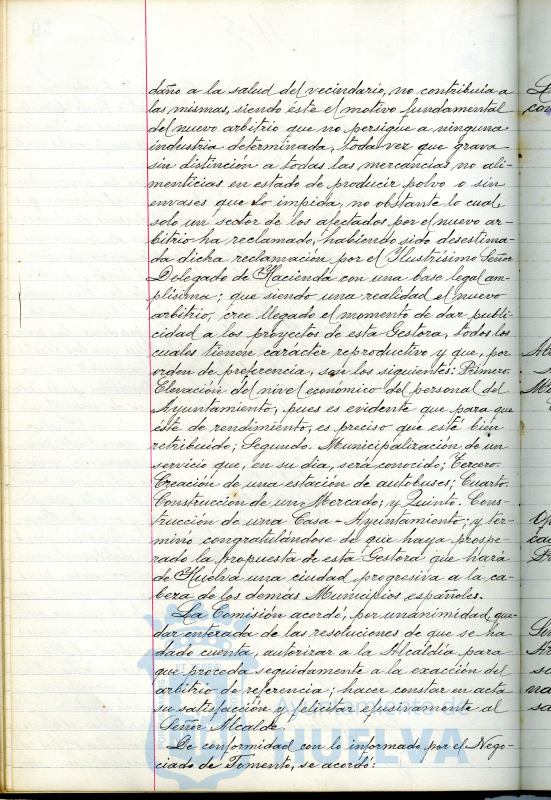 daño a la salud del vecindario, no contribuia a
las mismas, siendo éste el motivo fundamental
del nuevo arbitrio que no persigue a ninguna
industria determinada, toda vez que grava
sin distinción a todas las mercancías no ali-
menticias en estado de producir polvo o sin
envases que lo impida, no obstante lo cual,
solo un sector de los afectados por el nuevo ar-
bitrio ha reclamado, habiendo sido desestima-
da dicha reclamación por el Ilustrísimo Señor
Delegado de Hacienda con una base legal am-
plísima; que siendo una realidad el nuevo
arbitrio, cree llegado el momento de dar publi-
cidad a los proyectos de esta Gestora, todos los
cuales tienen carácter reproductivo y que, por
orden de preferencia, son los siguientes: Primero.
Elevación del nivel económico del personal del
Ayuntamiento, pues es evidente que para que
éste de rendimiento, es preciso que esté bien
retribuido; Segundo. Municipalización de un
servicio que, en su dia, será conocido; Tercero.
Creación de una estación de autobuses; Cuarto.
Construcción de un Mercado; y Quinto. Cons-
trucción de una Casa-Ayuntamiento; y ter-
minó congratulándose de que haya prospe-
rado la propuesta de esta Gestora que hará
de Huelva una ciudad progresiva a la ca-
beza de los demás Municipios españoles.
La Comisión acordó, por unanimidad, que-
dar enterada de las resoluciones de que se ha
dado cuenta, autorizar a la Alcaldía para
que proceda seguidamente a la exacción del
arbitrio de referencia; hacer constar en acta
su satisfacción y felicitar efusivamente al
Señor Alcalde.
De conformidad con lo informado por el Nego-
ciado de Fomento, se acordó:
HUELVA